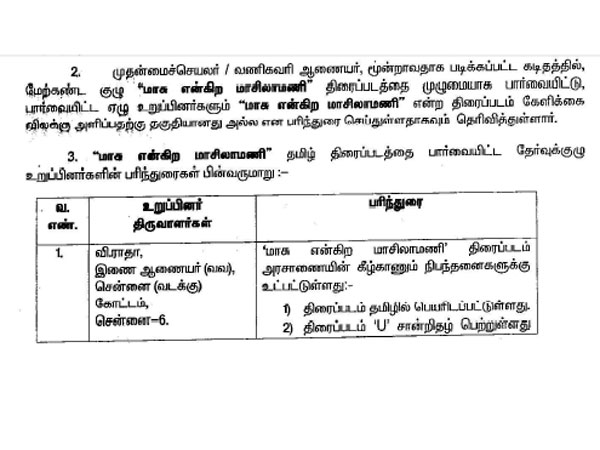 2. முதன்மைச்செயலர் / வணிகவரி ஆணையர், மூன்றாவதாக படிக்கப்பட்ட கடிதத்தில்,
மேற்கண்ட குழு "மாசு என்கிற மாசிலாமணி" திரைப்படத்தை முழுமையாக பார்வையிட்டு,
பார்வையிட்ட ஏழு உறுப்பினர்களும் "மாசு என்கிற மாசிலாமணி" என்ற திரைப்படம் கேளிக்கை
விலக்கு அளிப்பதற்கு தகுதியானது அல்ல என பரிந்துரை செய்துள்ளதாகவும் தெரிவித்துள்ளார்.
3. "மாசு என்கிற மாசிலாமணி" தமிழ் திரைப்படத்தை பார்வையிட்ட தேர்வுக்குழு
உறுப்பினர்களின் பரிந்துரைகள் பின்வருமாறு :–
வ.
எண்.
உறுப்பினர்
திருவாளர்கள்
பரிந்துரை
1.
வி.ராதா,
இணை ஆணையர் (வவ),
சென்னை (வடக்கு)
கோட்டம்,
சென்னை–6.
'மாசு என்கிற மாசிலாமணி' திரைப்படம்
அரசாணையின் கீழ்காணும் நிபந்தனைகளுக்கு
உட்பட்டுள்ளது:-
1) திரைப்படம் தமிழில் பெயரிடப்பட்டுள்ளது.
2) திரைப்படம் 'U' சான்றிதழ் பெற்றுள்ளது